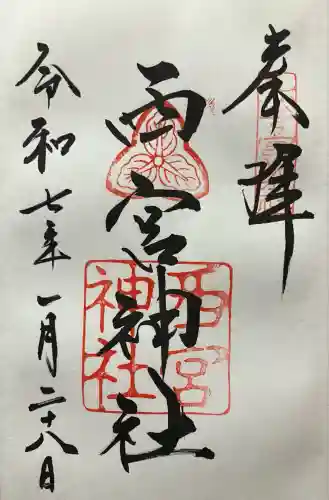 奉拝
西宮神社
令和七年一月二十八日
西宮
神社